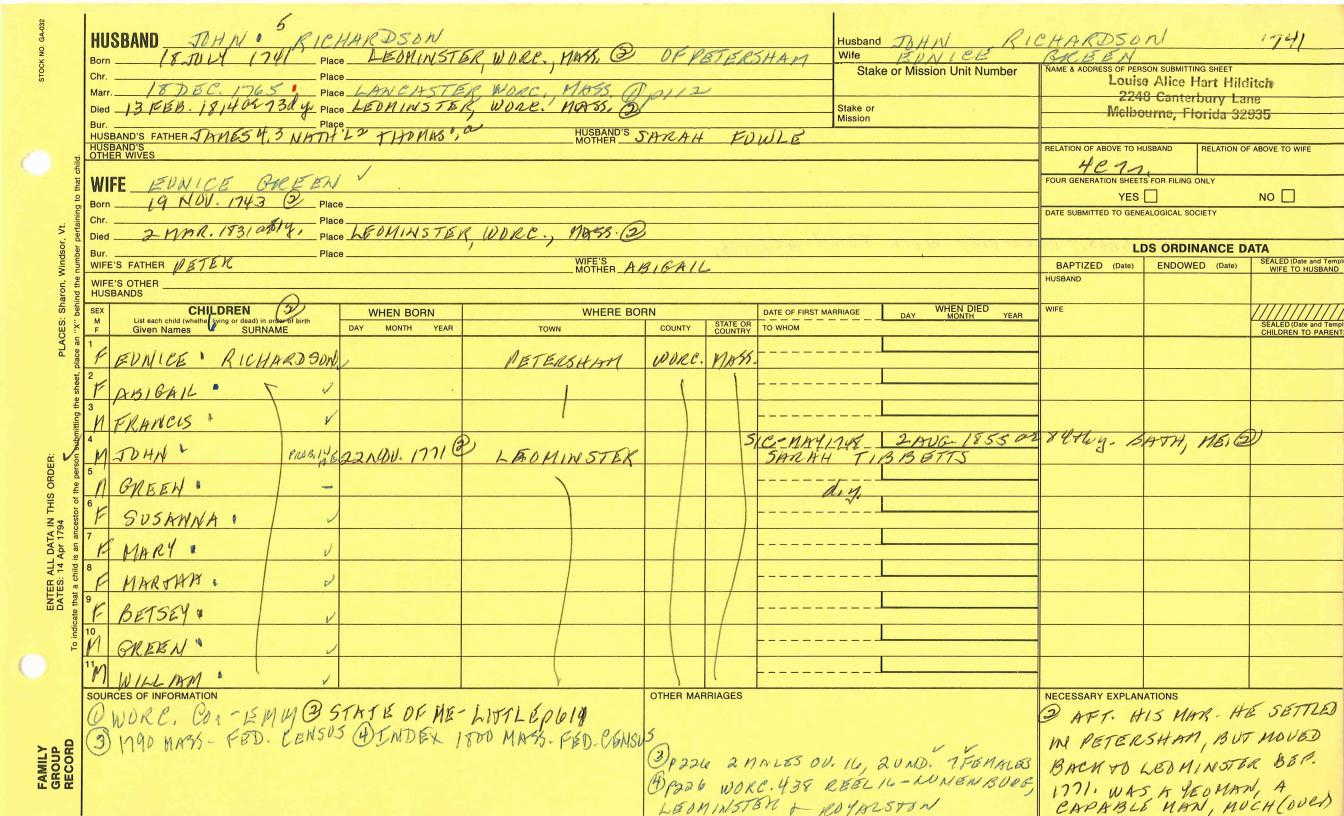 STOCK NO. GA-032
HUSBAND JOHN 5 RICHARDSON
Born 18 JULY 1741 Place LEOMINSTER, WORC., MASS. ② OF PETERSHAM
Chr. Place
Marr. 18 DEC. 1765 Place LANCASTER WORC., MASS. ① p112
Died 13 FEB. 1814 ae 73d y. Place LEOMINSTER, WORC., MASS. ②
Bur. Place
HUSBAND'S FATHER JAMES 4, 3 NATH'L 2 THOMAS 1, a HUSBAND'S MOTHER SARAH FOWLE
HUSBAND'S OTHER WIVES
WIFE EUNICE GREEN ✓
Born 19 NOV. 1743 ② Place
Chr. Place
Died 2 MAR. 1831 Place LEOMINSTER, WORC., MASS. ②
Bur. Place
WIFE'S FATHER PETER WIFE'S MOTHER ABIGAIL
WIFE'S OTHER HUSBANDS
Husband JOHN RICHARDSON 1741
Wife EUNICE GREEN
Stake or Mission Unit Number
Stake or Mission
NAME & ADDRESS OF PERSON SUBMITTING SHEET
Louise Alice Hart Hilditch
2248 Canterbury Lane
Melbourne, Florida 32935
RELATION OF ABOVE TO HUSBAND RELATION OF ABOVE TO WIFE
FOUR GENERATION SHEETS FOR FILING ONLY
YES NO
DATE SUBMITTED TO GENEALOGICAL SOCIETY
LDS ORDINANCE DATA
BAPTIZED (Date) ENDOWED (Date) SEALED (Date and Temple) WIFE TO HUSBAND
HUSBAND
WIFE
SEALED (Date and Temple) CHILDREN TO PARENTS
SEX M F CHILDREN ② WHEN BORN WHERE BORN DATE OF FIRST MARRIAGE WHEN DIED
List each child (whether living or dead) in order of birth
Given Names SURNAME DAY MONTH YEAR TOWN COUNTY STATE OR COUNTRY TO WHOM DAY MONTH YEAR
1 F EUNICE RICHARDSON PETERSHAM WORC. MASS.
2 F ABIGAIL ✓
3 M FRANCIS ✓
4 M JOHN 22 NOV. 1771 ② LEOMINSTER 2 AUG 1855 ae 84th y. BATH, ME. ②
SARAH TIBBETTS
5 M GREEN – d.y.
6 F SUSANNA ✓
7 F MARY ✓
8 F MARTHA ✓
9 F BETSEY ✓
10 M GREEN ✓
11 M WILLIAM ✓
PLACES: Sharon, Windsor, Vt.
ENTER ALL DATA IN THIS ORDER:
DATES: 14 Apr 1794
To indicate that a child is an ancestor of the person submitting the sheet, place an "X" behind the number pertaining to that child.
FAMILY GROUP RECORD
SOURCES OF INFORMATION
① WORC. Co. - EMM ② STATE OF ME - LITTLE p614
③ 1790 MASS - FED. CENSUS ④ INDEX 1800 MASS. FED. CENSUS
OTHER MARRIAGES
③ p226 2 MALES OV. 16, 2 UND. 7 FEMALES
④ p226 WORC. 438 REEL 16 - LUNENBURG,
LEOMINSTER & ROYALSTON
NECESSARY EXPLANATIONS
② AFT. HIS MAR. HE SETTLED
IN PETERSHAM, BUT MOVED
BACK TO LEOMINSTER BEF.
1771. WAS A YEOMAN, A
CAPABLE MAN, MUCH (OVER)